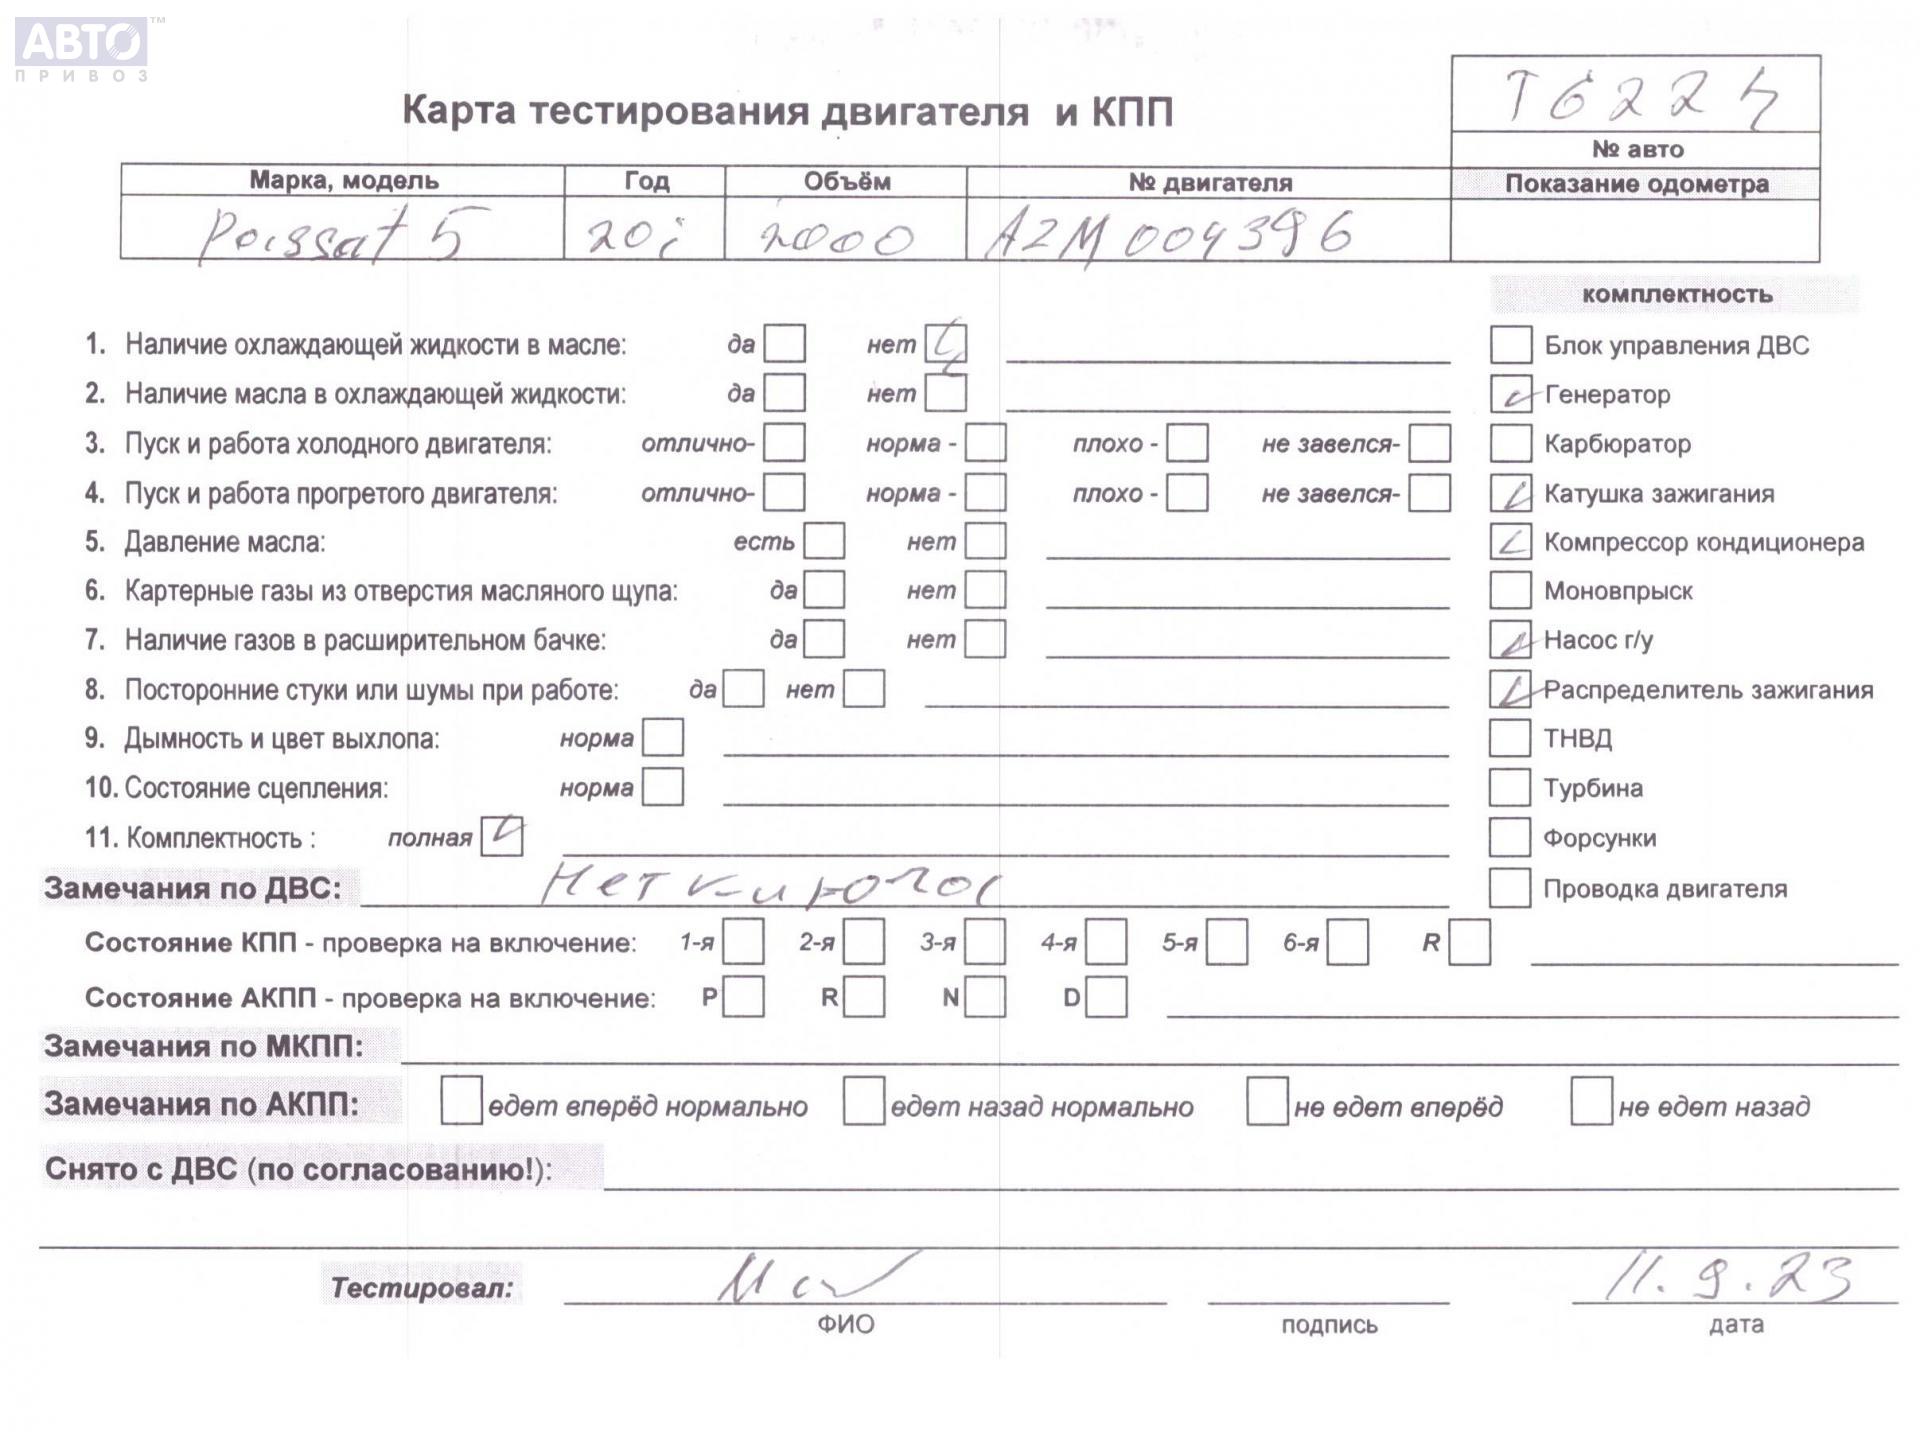 АВТО™
ПРИВОЗ
Карта тестирования двигателя и КПП
T6224
№ авто
Марка, модель Год Объём № двигателя Показание одометра
Passat 5 20i 2000 AZM 004396
комплектность
1. Наличие охлаждающей жидкости в масле: да нет Блок управления ДВС
2. Наличие масла в охлаждающей жидкости: да нет Генератор
3. Пуск и работа холодного двигателя: отлично- норма - плохо - не завелся- Карбюратор
4. Пуск и работа прогретого двигателя: отлично- норма - плохо - не завелся- Катушка зажигания
5. Давление масла: есть нет Компрессор кондиционера
6. Картерные газы из отверстия масляного щупа: да нет Моновпрыск
7. Наличие газов в расширительном бачке: да нет Насос г/у
8. Посторонние стуки или шумы при работе: да нет Распределитель зажигания
9. Дымность и цвет выхлопа: норма ТНВД
10. Состояние сцепления: норма Турбина
11. Комплектность : полная Форсунки
Замечания по ДВС: Нет Проводка двигателя
Состояние КПП - проверка на включение: 1-я 2-я 3-я 4-я 5-я 6-я R
Состояние АКПП - проверка на включение: P R N D
Замечания по МКПП:
Замечания по АКПП: едет вперёд нормально едет назад нормально не едет вперёд не едет назад
Снято с ДВС (по согласованию!):
Тестировал: 11.9.23
ФИО подпись дата